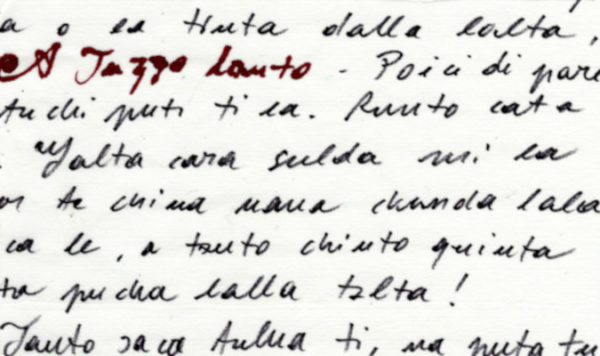 a o ea tinta dalla lalta,
A Tuzzo lanto - Poici di pare
tuchi puti ti ea. Runto cata
. Yalta cara sulda mi ea
te china nana chunda lala
ca le, a tanto chinto quinta
ta pucha lalla talta!
Tanto saca tulna ti, na puta tu